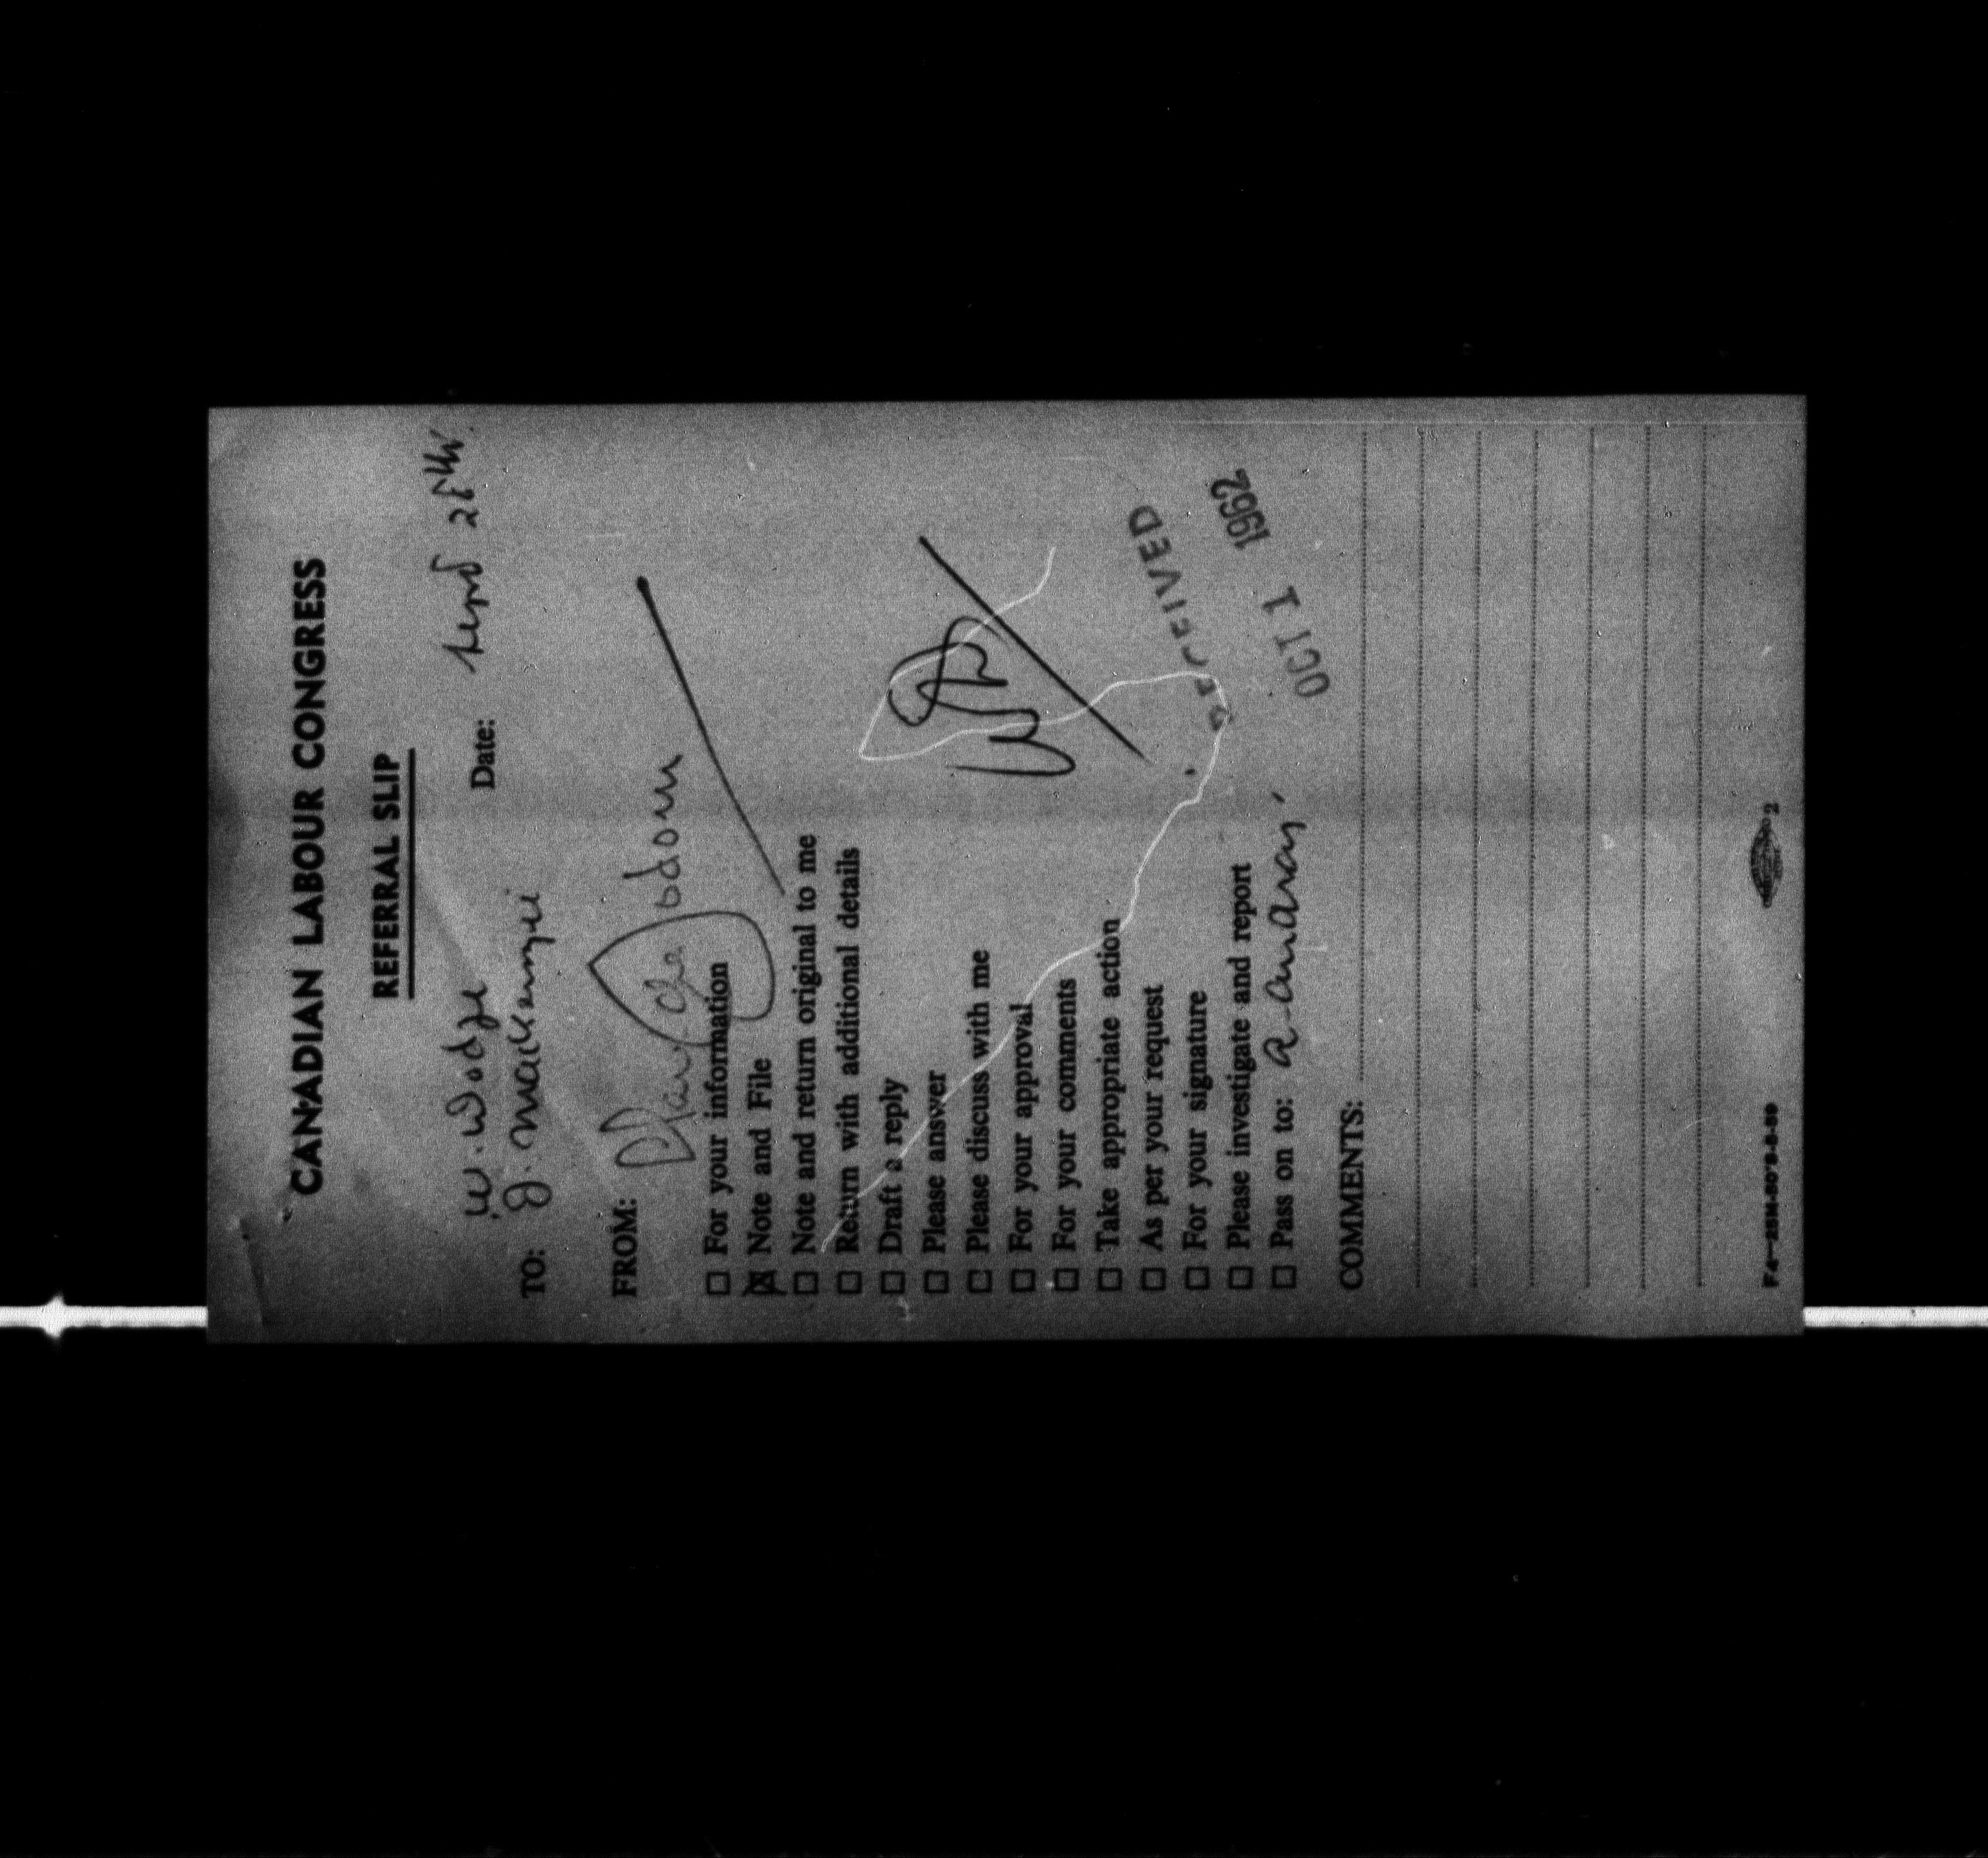 CANADIAN LABOUR CONGRESS
REFERRAL SLIP
Date: Sept 28th.
W. Dodge
TO: J. Mackenzie
FROM:
☐ For your information
☒ Note and File
☐ Note and return original to me
☐ Return with additional details
☐ Draft a reply
☐ Please answer
☐ Please discuss with me
☐ For your approval
☐ For your comments
☐ Take appropriate action
☐ As per your request
☐ For your signature
☐ Please investigate and report
☐ Pass on to:
RECEIVED
OCT 1 1962
COMMENTS:
2